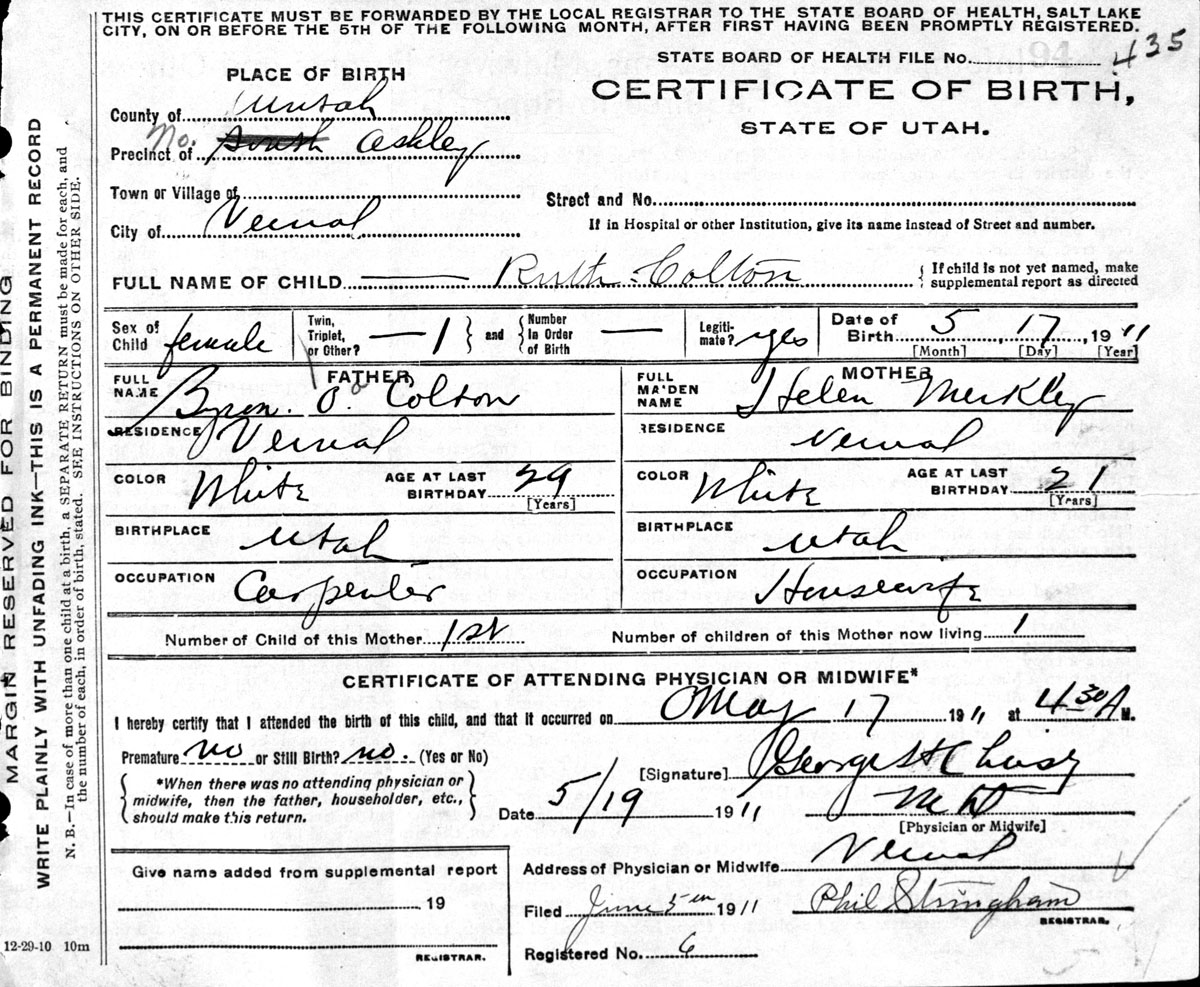 THIS CERTIFICATE MUST BE FORWARDED BY THE LOCAL REGISTRAR TO THE STATE BOARD OF HEALTH, SALT LAKE
CITY, ON OR BEFORE THE 5TH OF THE FOLLOWING MONTH, AFTER FIRST HAVING BEEN PROMPTLY REGISTERED.
STATE BOARD OF HEALTH FILE No. 435
PLACE OF BIRTH
CERTIFICATE OF BIRTH,
STATE OF UTAH.
County of Uintah
Precinct of No. South Ashley
Town or Village of
Street and No.
City of Vernal
If in Hospital or other Institution, give its name instead of Street and number.
FULL NAME OF CHILD Ruth Colton
{ If child is not yet named, make
supplemental report as directed
Sex of Child female
Twin, Triplet, or Other? — 1 } and { Number In Order of Birth —
Legitimate? yes
Date of Birth 5, 17, 1911
[Month] [Day] [Year]
FATHER
FULL NAME Byron. O. Colton
RESIDENCE Vernal
COLOR White
AGE AT LAST BIRTHDAY 29
[Years]
BIRTHPLACE Utah
OCCUPATION Carpenter
MOTHER
FULL MAIDEN NAME Helen Merkley
RESIDENCE Vernal
COLOR White
AGE AT LAST BIRTHDAY 21
[Years]
BIRTHPLACE Utah
OCCUPATION Housewife
Number of Child of this Mother 1st
Number of children of this Mother now living 1
CERTIFICATE OF ATTENDING PHYSICIAN OR MIDWIFE*
I hereby certify that I attended the birth of this child, and that it occurred on May 17 1911 at 4 30 A M.
Premature no or Still Birth? no. (Yes or No)
{ *When there was no attending physician or
midwife, then the father, householder, etc.,
should make this return. }
[Signature] George H
Date 5/19 1911
M D
[Physician or Midwife]
Address of Physician or Midwife Vernal
Give name added from supplemental report
19
REGISTRAR.
Filed June 5th 1911
Phil Stringham
REGISTRAR.
Registered No. 6
12-29-10 10m
MARGIN RESERVED FOR BINDING
WRITE PLAINLY WITH UNFADING INK—THIS IS A PERMANENT RECORD
N. B.—In case of more than one child at a birth, a SEPARATE RETURN must be made for each, and
the number of each, in order of birth, stated. SEE INSTRUCTIONS ON OTHER SIDE.